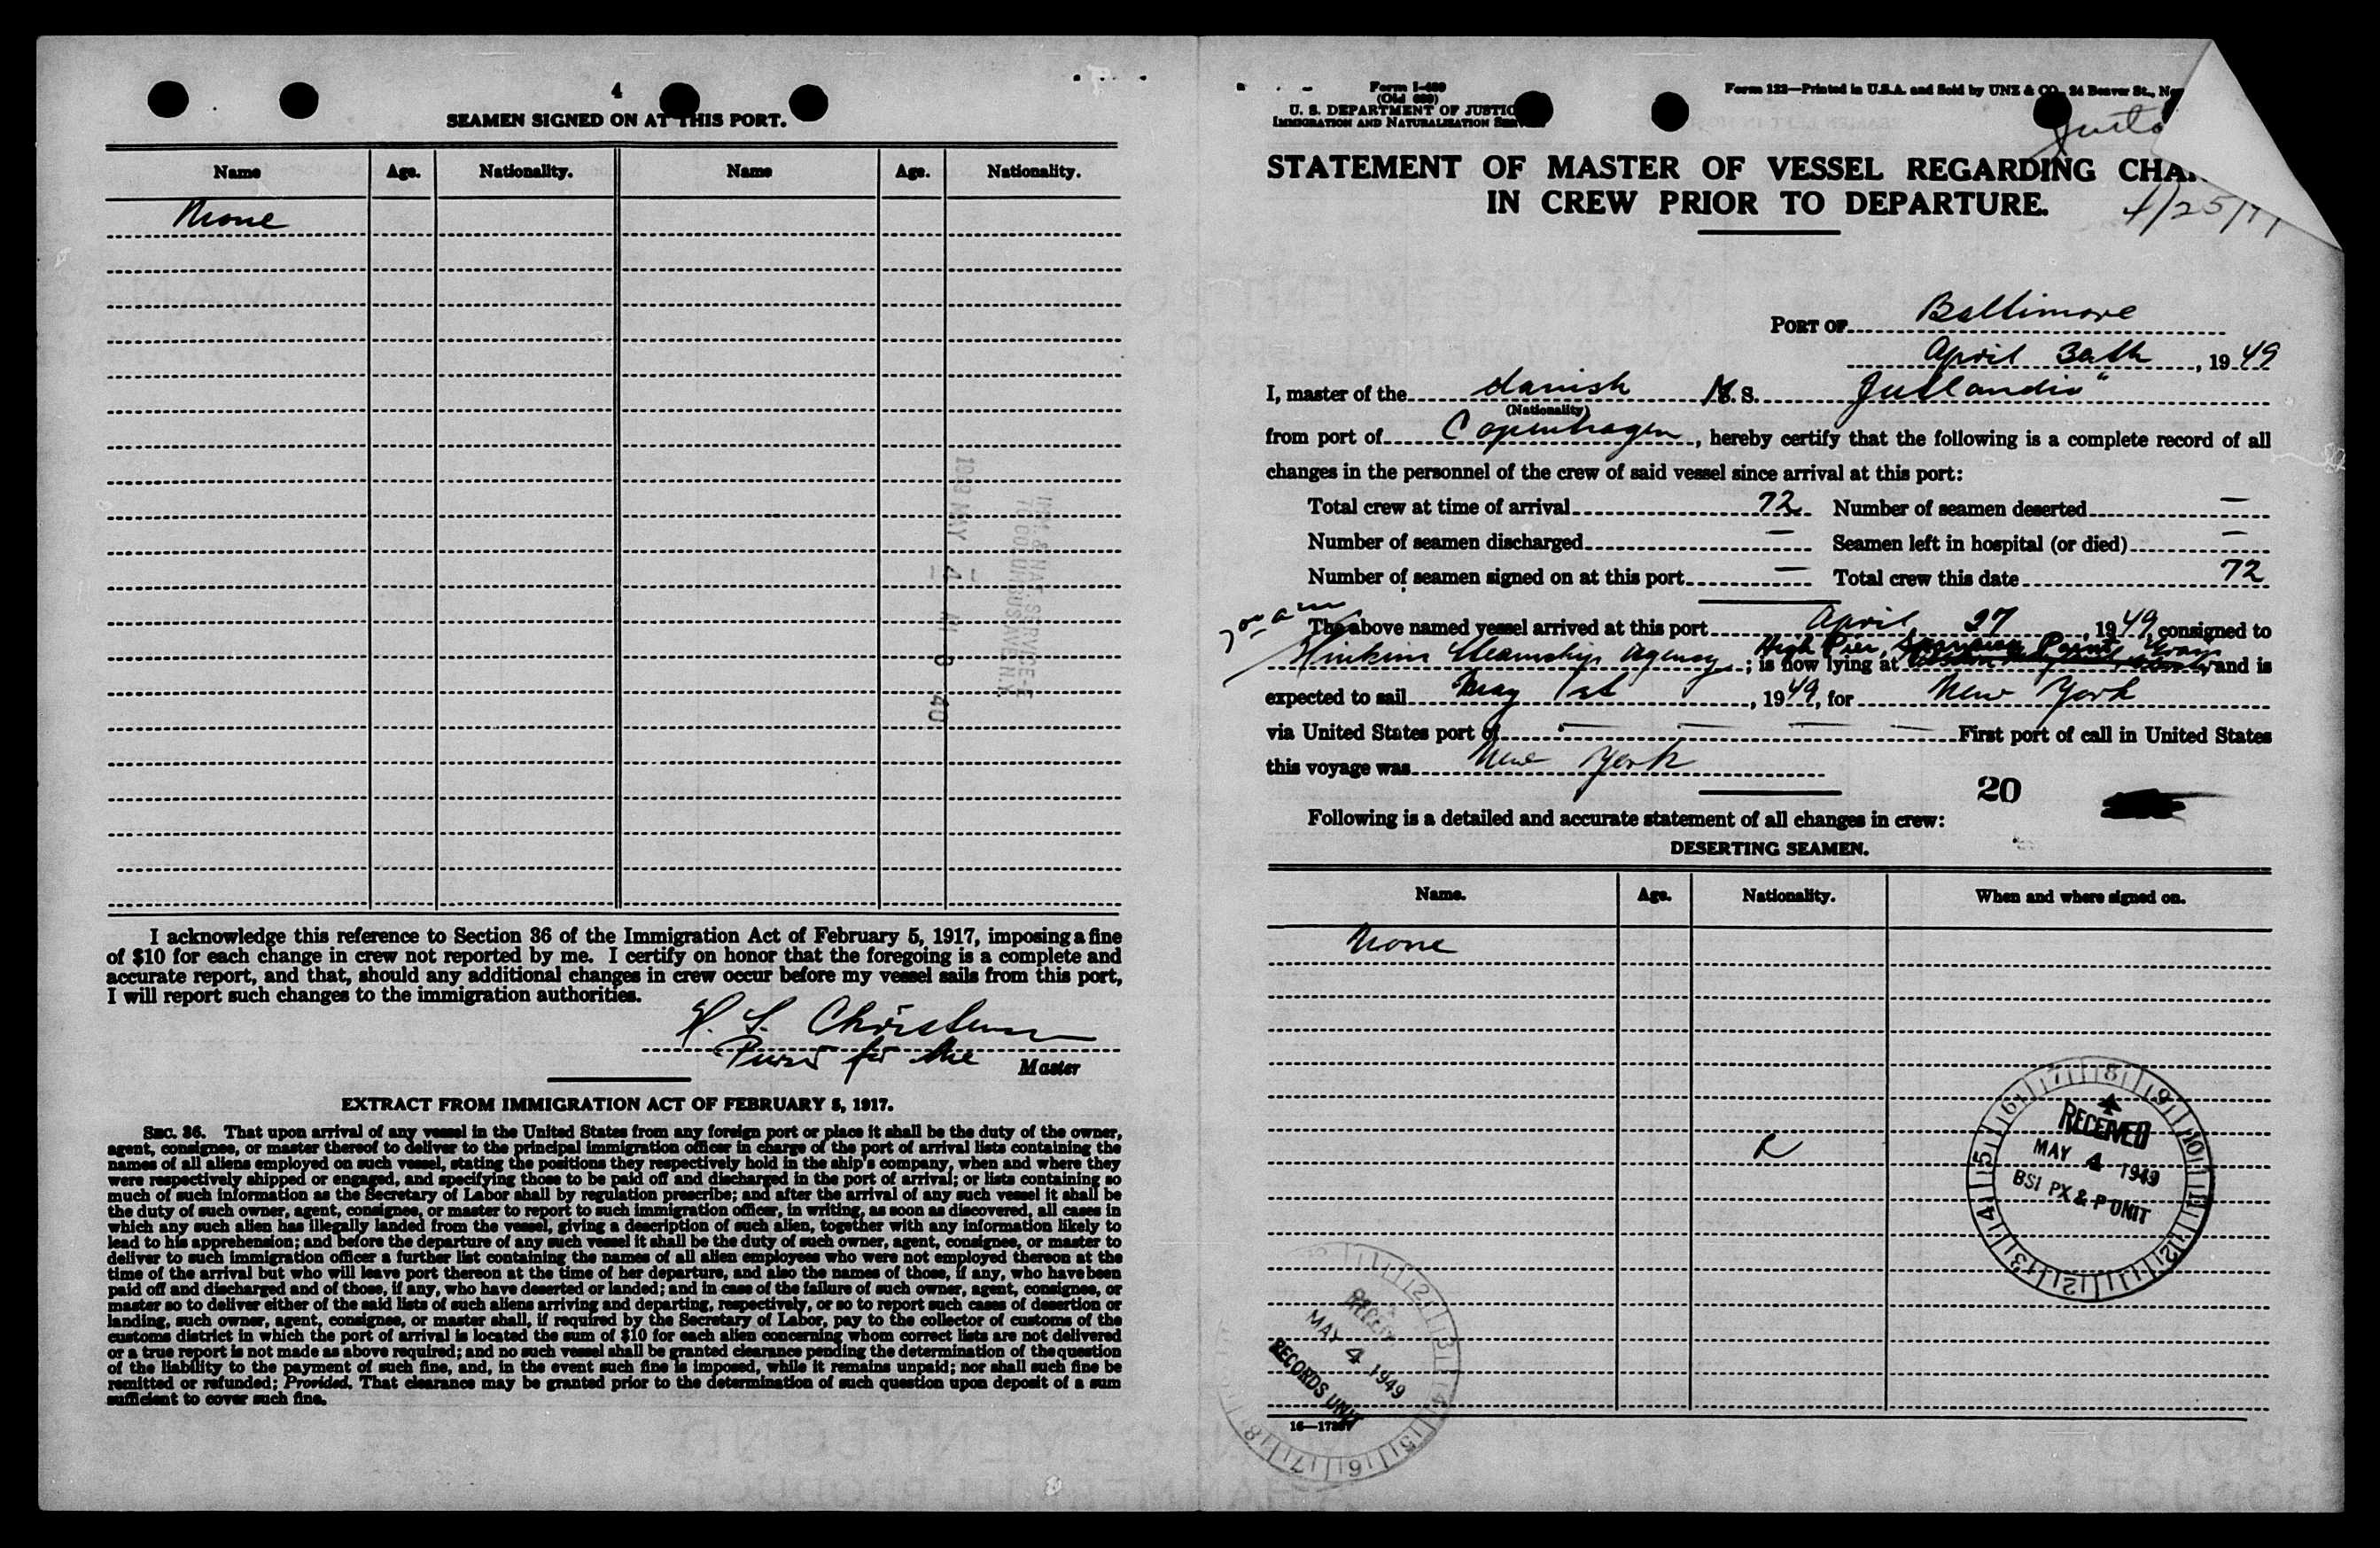 4
SEAMEN SIGNED ON AT THIS PORT.
Name Age. Nationality. Name Age. Nationality.
None
1949 MAY 4 AM 8 40
IMM. & NAT. SERVICE
70 COLUMBUS AVE. N.Y.
I acknowledge this reference to Section 36 of the Immigration Act of February 5, 1917, imposing a fine
of $10 for each change in crew not reported by me. I certify on honor that the foregoing is a complete and
accurate report, and that, should any additional changes in crew occur before my vessel sails from this port,
I will report such changes to the immigration authorities.
H. S. Christensen
for the Master
EXTRACT FROM IMMIGRATION ACT OF FEBRUARY 5, 1917.
SEC. 36. That upon arrival of any vessel in the United States from any foreign port or place it shall be the duty of the owner,
agent, consignee, or master thereof to deliver to the principal immigration officer in charge of the port of arrival lists containing the
names of all aliens employed on such vessel, stating the positions they respectively hold in the ship's company, when and where they
were respectively shipped or engaged, and specifying those to be paid off and discharged in the port of arrival; or lists containing so
much of such information as the Secretary of Labor shall by regulation prescribe; and after the arrival of any such vessel it shall be
the duty of such owner, agent, consignee, or master to report to such immigration officer, in writing, as soon as discovered, all cases in
which any such alien has illegally landed from the vessel, giving a description of such alien, together with any information likely to
lead to his apprehension; and before the departure of any such vessel it shall be the duty of such owner, agent, consignee, or master to
deliver to such immigration officer a further list containing the names of all alien employees who were not employed thereon at the
time of the arrival but who will leave port thereon at the time of her departure, and also the names of those, if any, who have been
paid off and discharged and of those, if any, who have deserted or landed; and in case of the failure of such owner, agent, consignee, or
master so to deliver either of the said lists of such aliens arriving and departing, respectively, or so to report such cases of desertion or
landing, such owner, agent, consignee, or master shall, if required by the Secretary of Labor, pay to the collector of customs of the
customs district in which the port of arrival is located the sum of $10 for each alien concerning whom correct lists are not delivered
or a true report is not made as above required; and no such vessel shall be granted clearance pending the determination of the question
of the liability to the payment of such fine, and, in the event such fine is imposed, while it remains unpaid; nor shall such fine be
remitted or refunded; Provided, That clearance may be granted prior to the determination of such question upon deposit of a sum
sufficient to cover such fine.
Form I-489
(Old 689)
U. S. DEPARTMENT OF JUSTICE
IMMIGRATION AND NATURALIZATION SERVICE
Form 122—Printed in U.S.A. and Sold by UNZ & CO., 24 Beaver St., Ne
STATEMENT OF MASTER OF VESSEL REGARDING CHA
IN CREW PRIOR TO DEPARTURE.
4/25/
PORT OF Baltimore
April 30th, 1949
I, master of the danish M.S. Jutlandia"
(Nationality)
from port of Copenhagen, hereby certify that the following is a complete record of all
changes in the personnel of the crew of said vessel since arrival at this port:
Total crew at time of arrival 72 Number of seamen deserted —
Number of seamen discharged — Seamen left in hospital (or died) —
Number of seamen signed on at this port — Total crew this date 72
700 am
The above named vessel arrived at this port April 27, 1949, consigned to
High Pier, Sparrows Point
Hinkins Steamship Agency; is now lying at and is
expected to sail May 1st, 1949, for New York
via United States port of — — — — First port of call in United States
this voyage was New York
20
Following is a detailed and accurate statement of all changes in crew:
DESERTING SEAMEN.
Name. Age. Nationality. When and where signed on.
None
R
RECEIVED
MAY 4 1949
BSI PX & P UNIT
MAY 4 1949
RECORDS UNIT